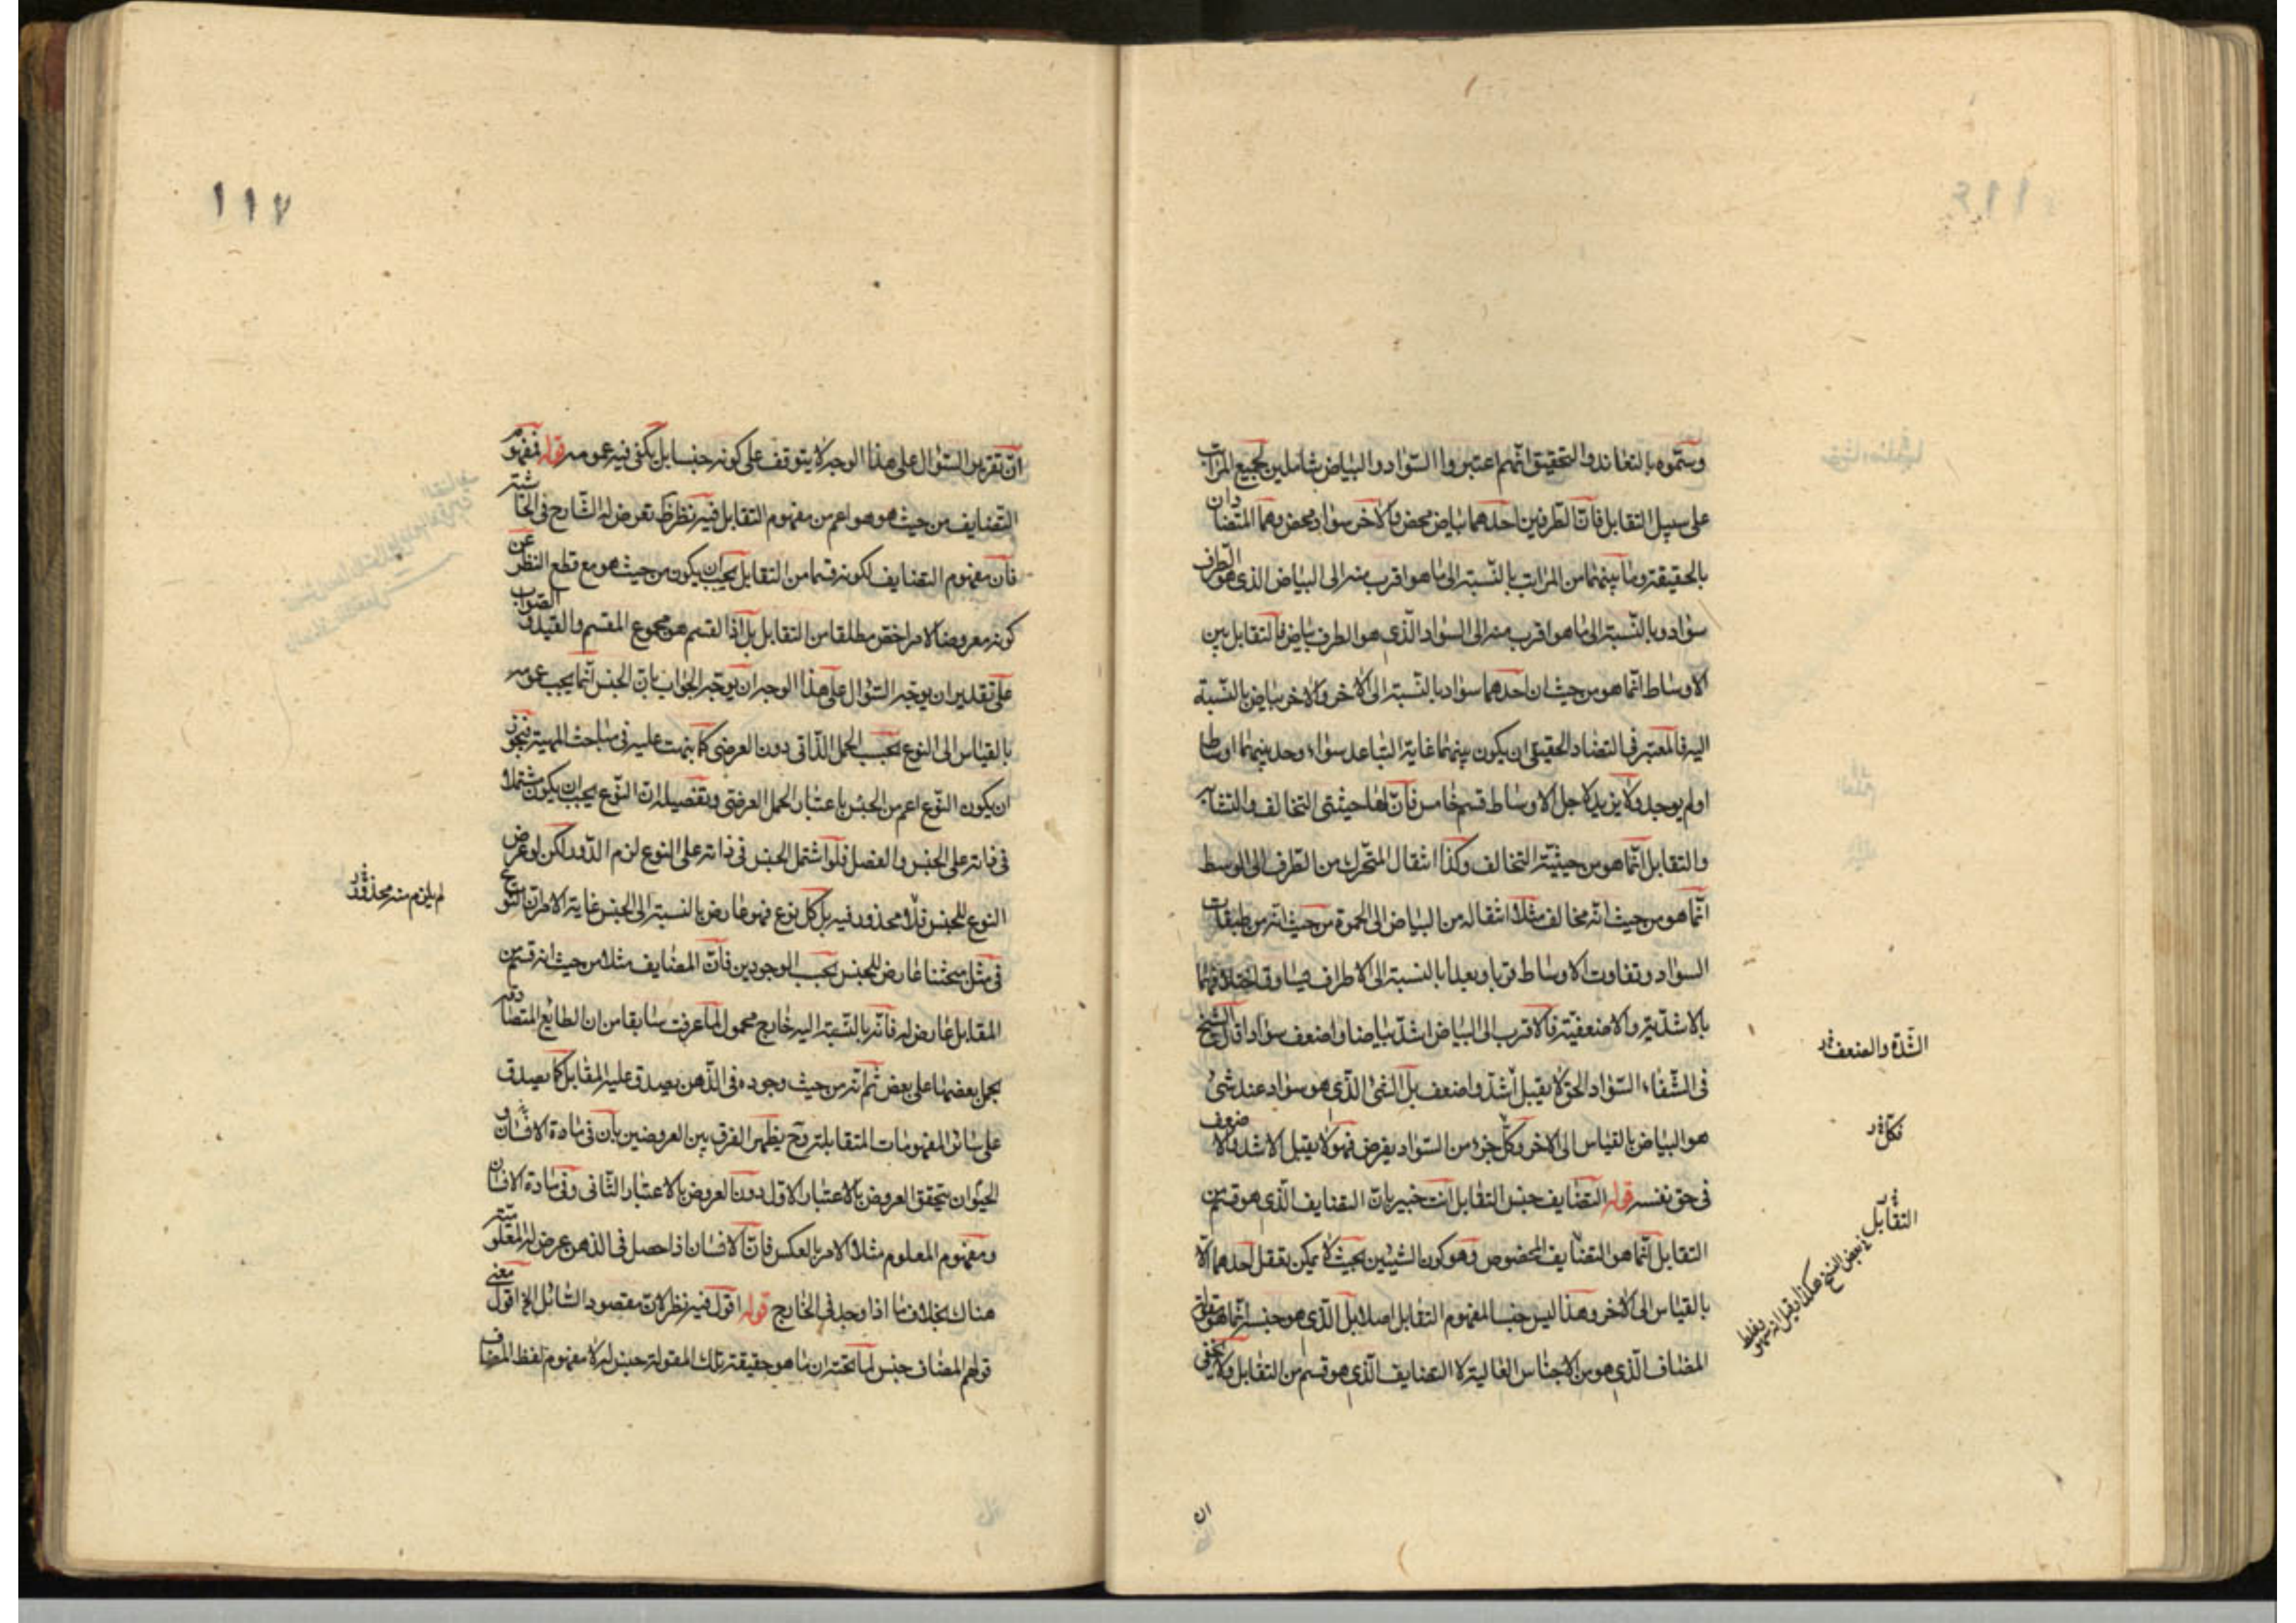 وسموه بالتعاند والتحقيق انهم اعتبروا السواد والبياض شاملين لجميع المراتب
على سبيل التقابل فان الطرفين احدهما بياض محض والاخر سواد محض وهما المتضادان
بالحقيقة وما بينهما من المراتب بالنسبة الى ما هو اقرب منه الى البياض الذى هو الطرف
سواد وبالنسبة الى ما هو اقرب منه الى السواد الذى هو الطرف بياض فالتقابل بين
الاوساط انما هو من حيث ان احدهما سواد بالنسبة الى الاخر والاخر بياض بالنسبة
اليه فالمعتبر فى التضاد الحقيقى ان يكون بينهما غاية التباعد سواء وجد بينهما اوساط
او لم يوجد ولا يزيد لاجل الاوساط قسم خامس فان لها حيثيتى التخالف والتشابه
والتقابل انما هو من حيثية التخالف وكذا انتقال المتحرك من الطرف الى الوسط
انما هو من حيث انه مخالف مثلا انتقاله من البياض الى الحمرة من حيث انه من طبقات
السواد وتفاوت الاوساط قربا وبعدا بالنسبة الى الاطراف يساوق اختلافهما
بالاشدية والاضعفية فالاقرب الى البياض اشد بياضا واضعف سوادا قال الشيخ
فى الشفاء السواد الحق لا يقبل اشد واضعف بل الشئ الذى هو سواد عند شئ
هو البياض بالقياس الى الاخر وكل جزء من السواد يفرض فهو لا يقبل الاشد ولا ضعف
فى حق نفسه قوله التضايف جنس التقابل انت خبير بان التضايف الذى هو قسم من
التقابل انما هو التضايف المخصوص وهو كون الشيئين بحيث لا يمكن تعقل احدهما الا
بالقياس الى الاخر وهذا ليس جنسا لمفهوم التقابل اصلا بل الذى هو جنسه انما هو مقولة
المضاف الذى هو من الاجناس العالية لا التضايف الذى هو قسم من التقابل ولا يخفى
الشدة والضعف
فكل
التقابل
فى بعض النسخ هكذا
ان
١١٧
ان تقرير السؤال على هذا الوجه لا يتوقف على كونه جنسا بل يكفى فيه عمومه قوله فمفهوم
التضايف من حيث هو هو اعم من مفهوم التقابل فيه نظر تعرض له الشارح فى الحاشية
فان مفهوم التضايف لكونه قسما من التقابل يجب ان يكون من حيث هو مع قطع النظر عن
كونه معروضا لامر اخص مطلقا من التقابل بل اذا القسم هو مجموع المقسم والقيد والصواب
على تقدير ان يوجه السؤال على هذا الوجه ان يوجه الجواب بان الجنس انما يجب عمومه
بالقياس الى النوع بحسب الحمل الذاتى دون العرضى كما نبهت عليه فى مباحث المهية فيجوز
ان يكون النوع اعم من الجنس باعتبار الحمل العرضى وتفصيله ان النوع يجب ان يكون مشتملا
فى ذاته على الجنس والفصل فلو اشتمل الجنس فى ذاته على النوع لزم الدور لكن لو عرض
النوع للجنس فلا محذور فيه بل كل نوع فهو عارض بالنسبة الى الجنس غاية الامر ان النوع
فى مثل مبحثنا عارض للجنس بحسب الوجودين فان المضايف مثلا من حيث انه قسم من
المقابل عارض له فانه بالنسبة اليه خارج محمول لما عرفت سابقا من ان الطبايع المتصادقة
يحمل بعضها على بعض ثم انه من حيث وجوده فى الذهن يصدق عليه المقابل كما يصدق
على سائر المفهومات المتقابلة وح يظهر الفرق بين العروضين بان فى مادة الانسان و
الحيوان يتحقق العروض بالاعتبار الاول دون العروض بالاعتبار الثانى وفى مادة الانسان
ومفهوم المعلوم مثلا الامر بالعكس فان الانسان اذا حصل فى الذهن عرض له المعلومية
هناك بخلاف ما اذا وجد فى الخارج قوله اقول فيه نظر لان مقصود السائل الخ اقول معنى
قولهم المضاف جنس لما تحته ان ما هو حقيقة تلك المقولة جنس له لا مفهوم لفظ المضاف
لم يلزم منه محذور